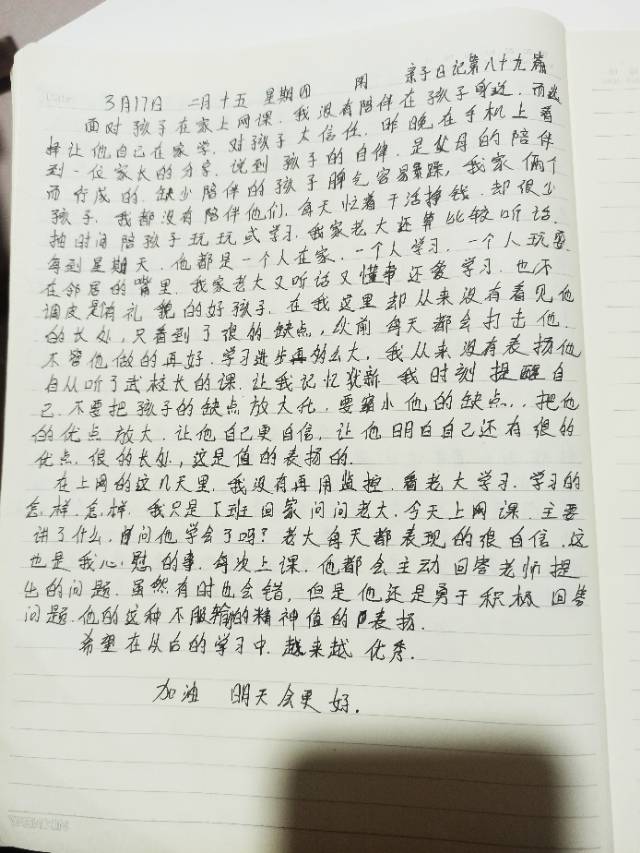 亲子日记第八十九篇
3月17日 二月十五 星期四 阴
面对孩子在家上网课.我没有陪伴在孩子身边.而选
择让他自己在家学.对孩子太信任.昨晚在手机上看
到一位家长的分享.说到孩子的自律.是父母的陪伴
而行成的.缺少陪伴的孩子脾气容易暴躁,我家俩个
孩子.我都没有陪伴他们.每天忙着干活挣钱.却很少
抽时间陪孩子玩玩或学习.我家老大还算比较听话.
每到星期天.他都是一个人在家.一个人学习.一个人玩耍
在邻居的嘴里.我家老大又听话又懂事还爱学习.也不
调皮是有礼貌的好孩子.在我这里却从来没有看见他
的长处,只看到了很的缺点,从前每天都会打击他.
不管他做的再好.学习进步再么大,我从来没有表扬他
自从听了武校长的课.让我记忆犹新 我时刻提醒自
己.不要把孩子的缺点放大化.要缩小他的缺点,.把他
的优点放大.让他自己更自信.让他明白自己还有很的
优点.很的长处,这是值的表扬的.
在上网的这几天里.我没有再用监控.看老大学习.学习的
怎样.怎样.我只是下班回家问问老大.今天上网课.主要
讲了什么.问他学会了吗?老大每天都表现的很自信.这
也是我心慰的事.每次上课.他都会主动回答老师提
出的问题.虽然有时也会错.但是他还是勇于积极回答
问题.他的这种不服输的精神值的表扬.
希望在以后的学习中.越来越优秀.
加油 明天会更好.